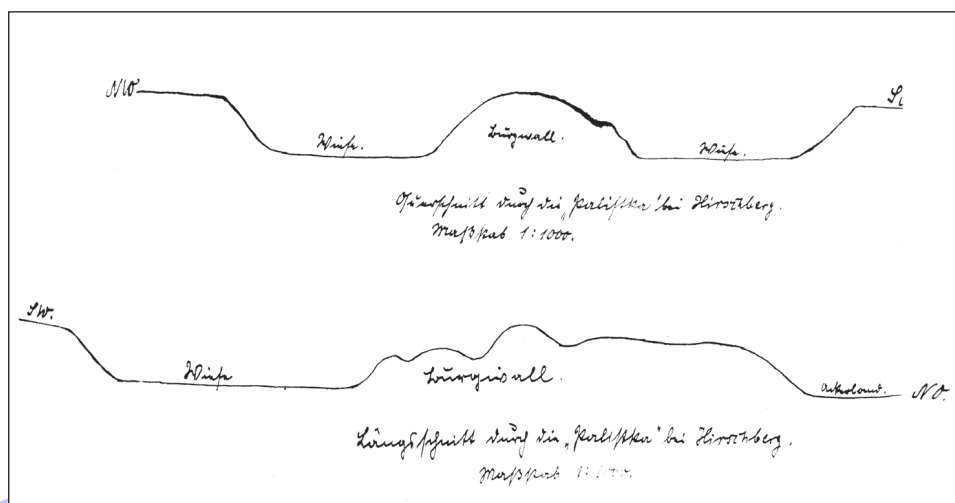 NW
S.
Wiese.
Burgwall.
Wiese.
Querschnitt durch die „Paliſtka“ bei Hirschberg.
Maßstab 1:1000.
SW.
Wiese
Burgwall.
Ackerland.
NO.
Längsschnitt durch die „Paliſtka“ bei Hirschberg.
Maßstab 1:1000.